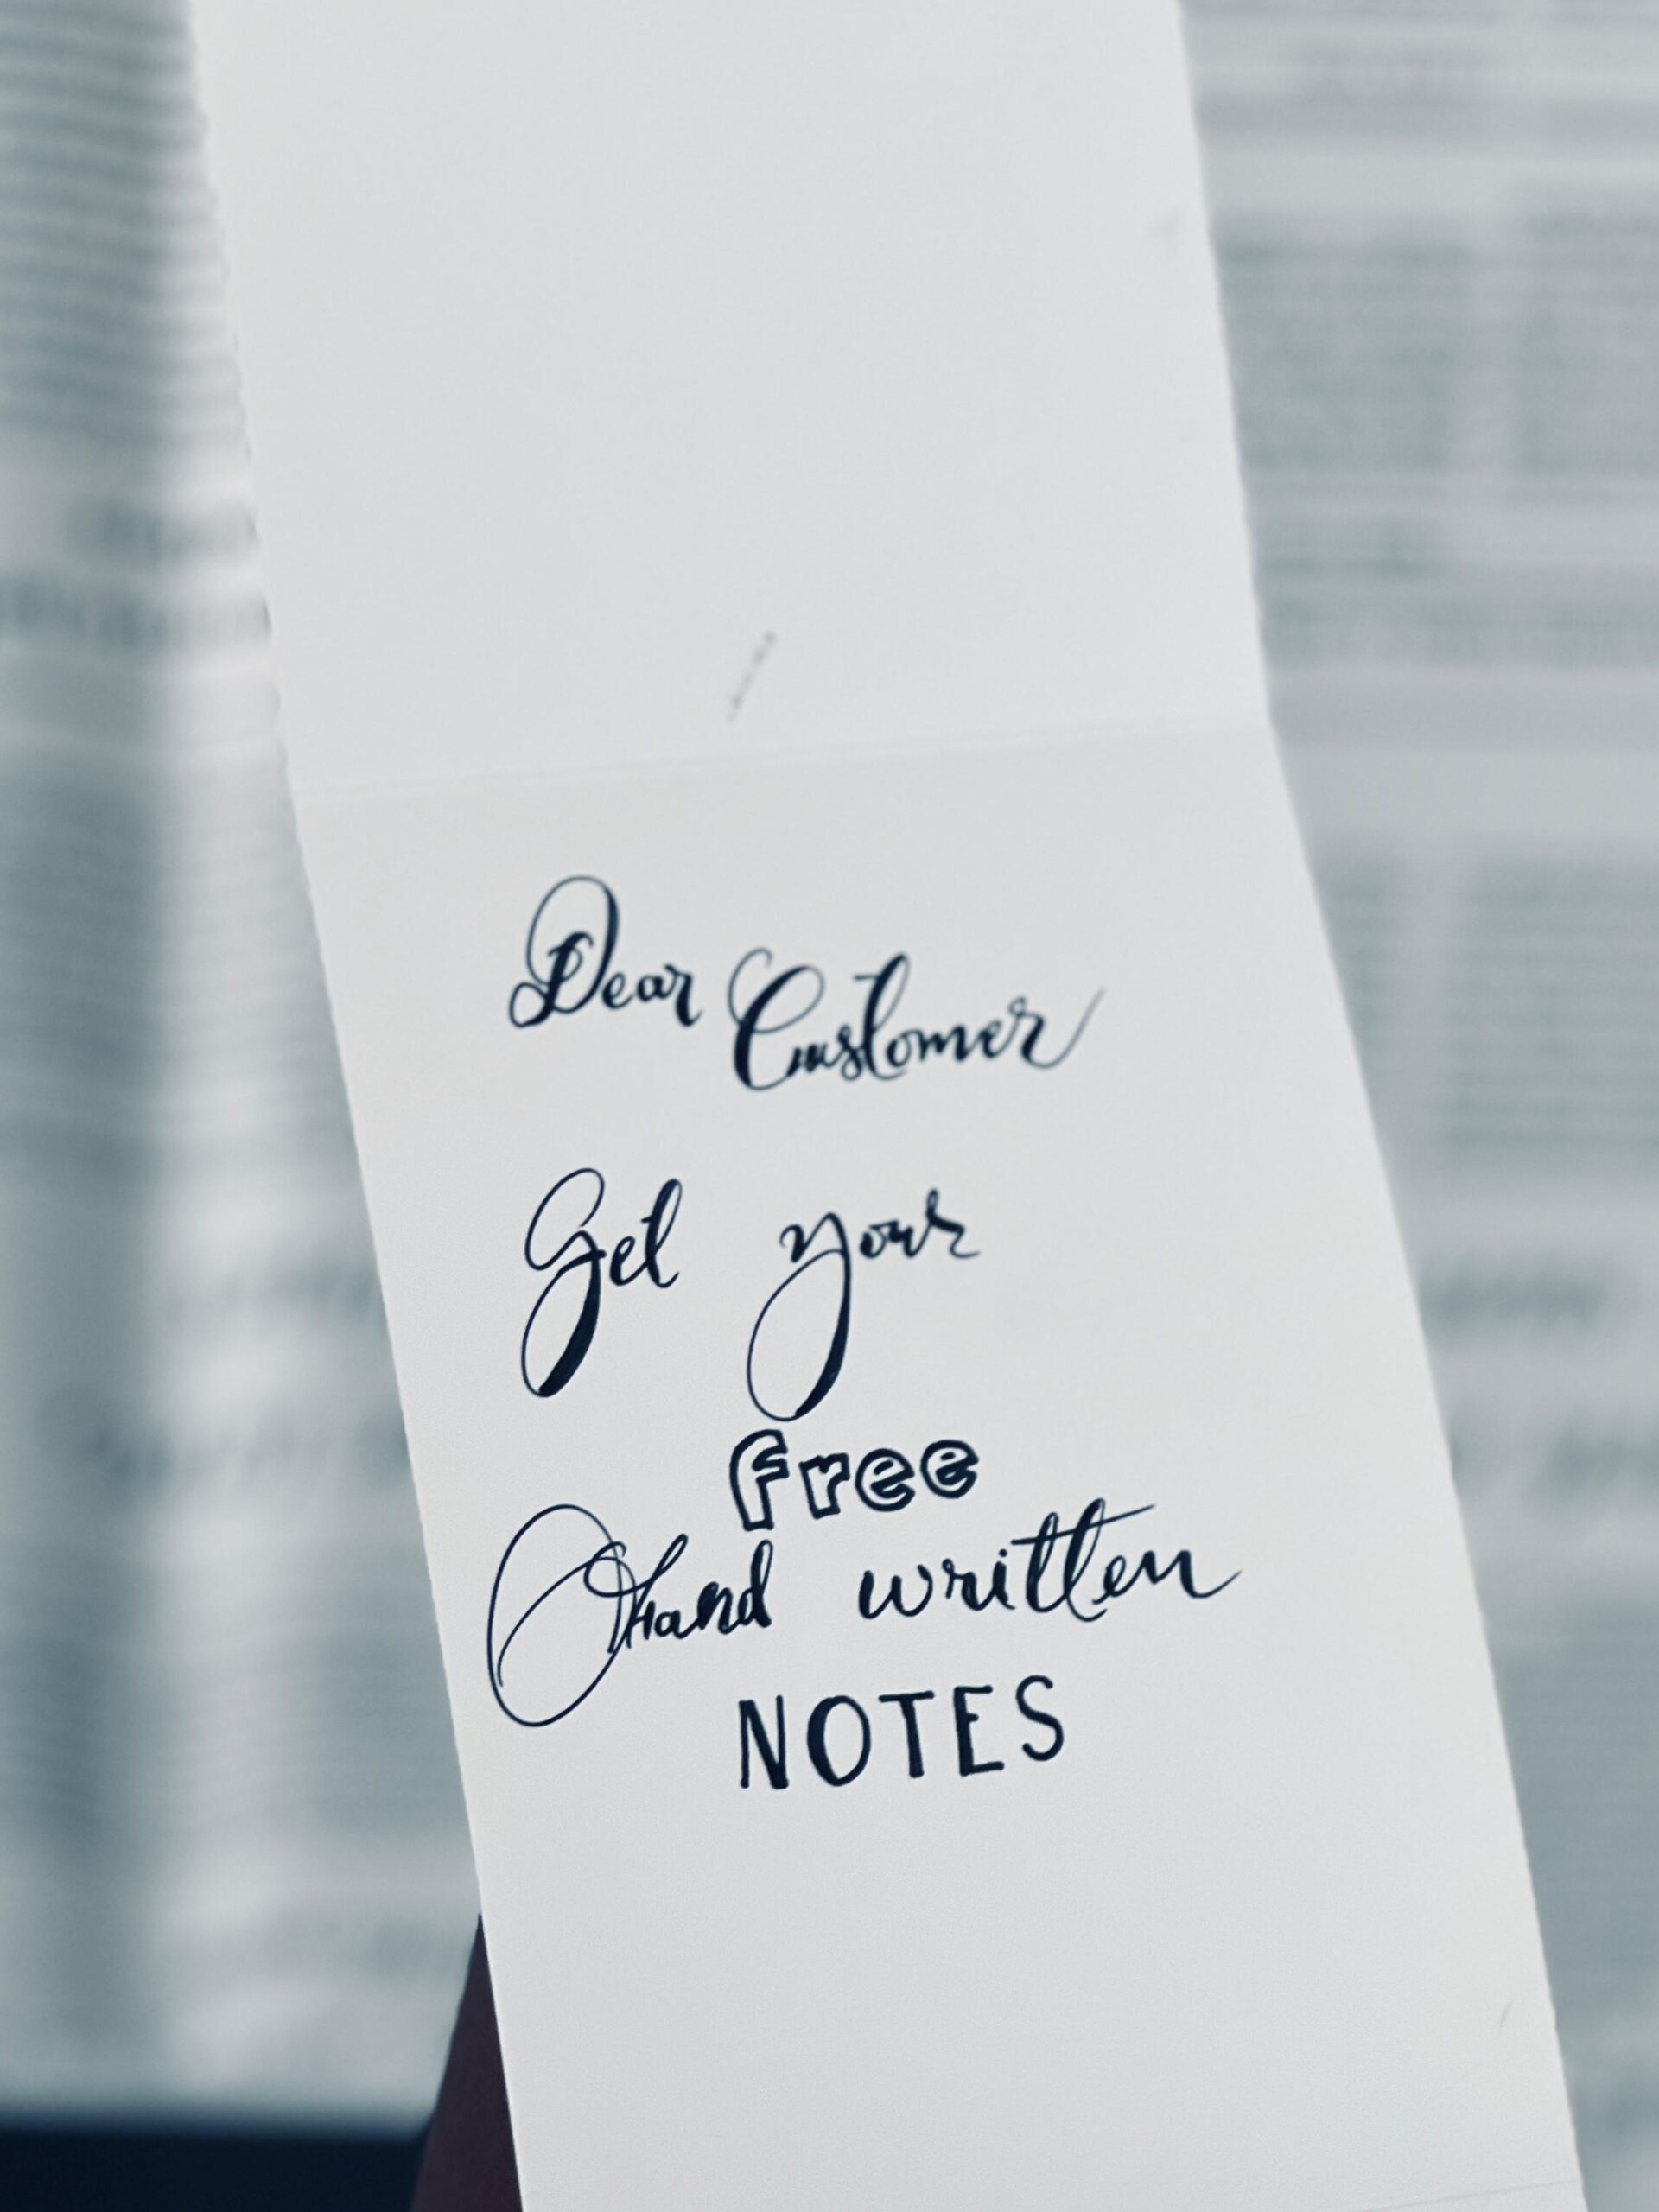 Dear Customer
Get your
free
hand written
NOTES